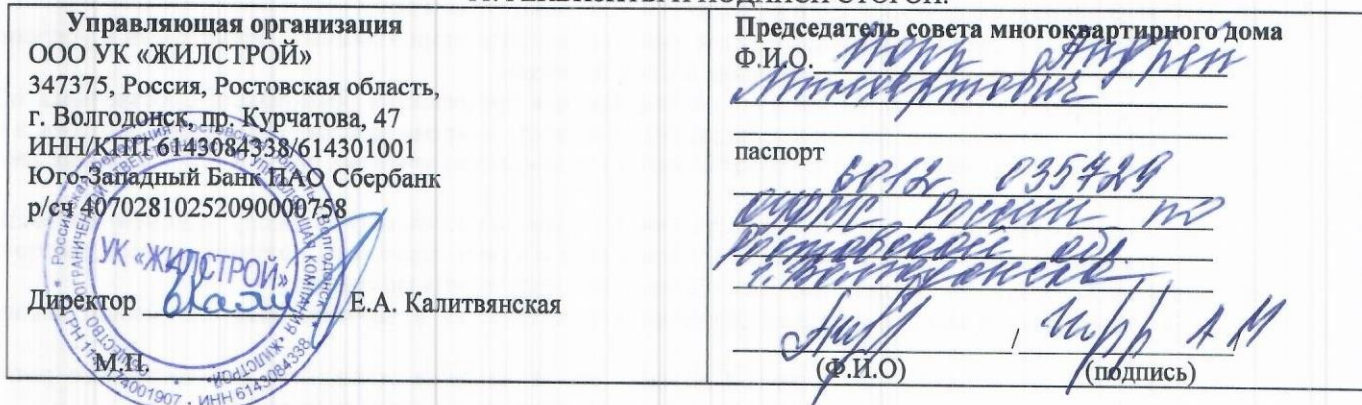 Управляющая организация
ООО УК «ЖИЛСТРОЙ»
347375, Россия, Ростовская область,
г. Волгодонск, пр. Курчатова, 47
ИНН/КПП 6143084338/614301001
Юго-Западный Банк ПАО Сбербанк
р/сч 40702810252090000758
УК «ЖИЛСТРОЙ»
Директор Е.А. Калитвянская
М.П.
Председатель совета многоквартирного дома
Ф.И.О. Андрей
паспорт
6012 035729
ОУФМС России по
Ростовской обл.
г. Волгодонска
/ А М
(Ф.И.О) (подпись)